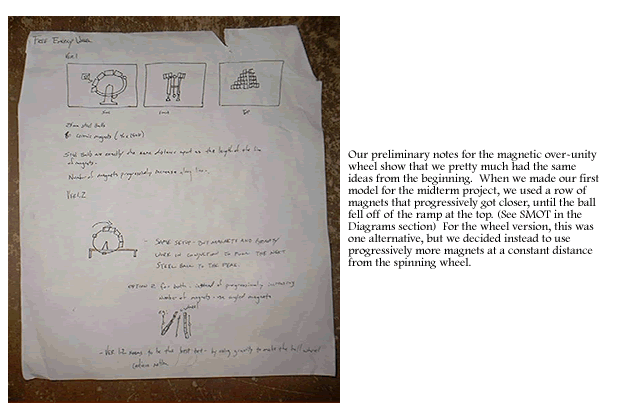 Free Energy Wheel
Ver. 1
Side
Front
25mm steel balls
Ceramic magnets
Steel Balls are exactly the same distance apart as the length of the line
of magnets.
Number of magnets progressively increase along line.
Ver. 1.2
- Same setup - but magnets and gravity
work in conjunction to push the next
steel ball to the peak.
option 2 for both - instead of progressively increasing
number of magnets - use angled magnets
- Ver. 1.2 seems to be the best bet - by using gravity to make the ball wheel
continue motion
Our preliminary notes for the magnetic over-unity
wheel show that we pretty much had the same
ideas from the beginning. When we made our first
model for the midterm project, we used a row of
magnets that progressively got closer, until the ball
fell off of the ramp at the top. (See SMOT in the
Diagrams section) For the wheel version, this was
one alternative, but we decided instead to use
progressively more magnets at a constant distance
from the spinning wheel.